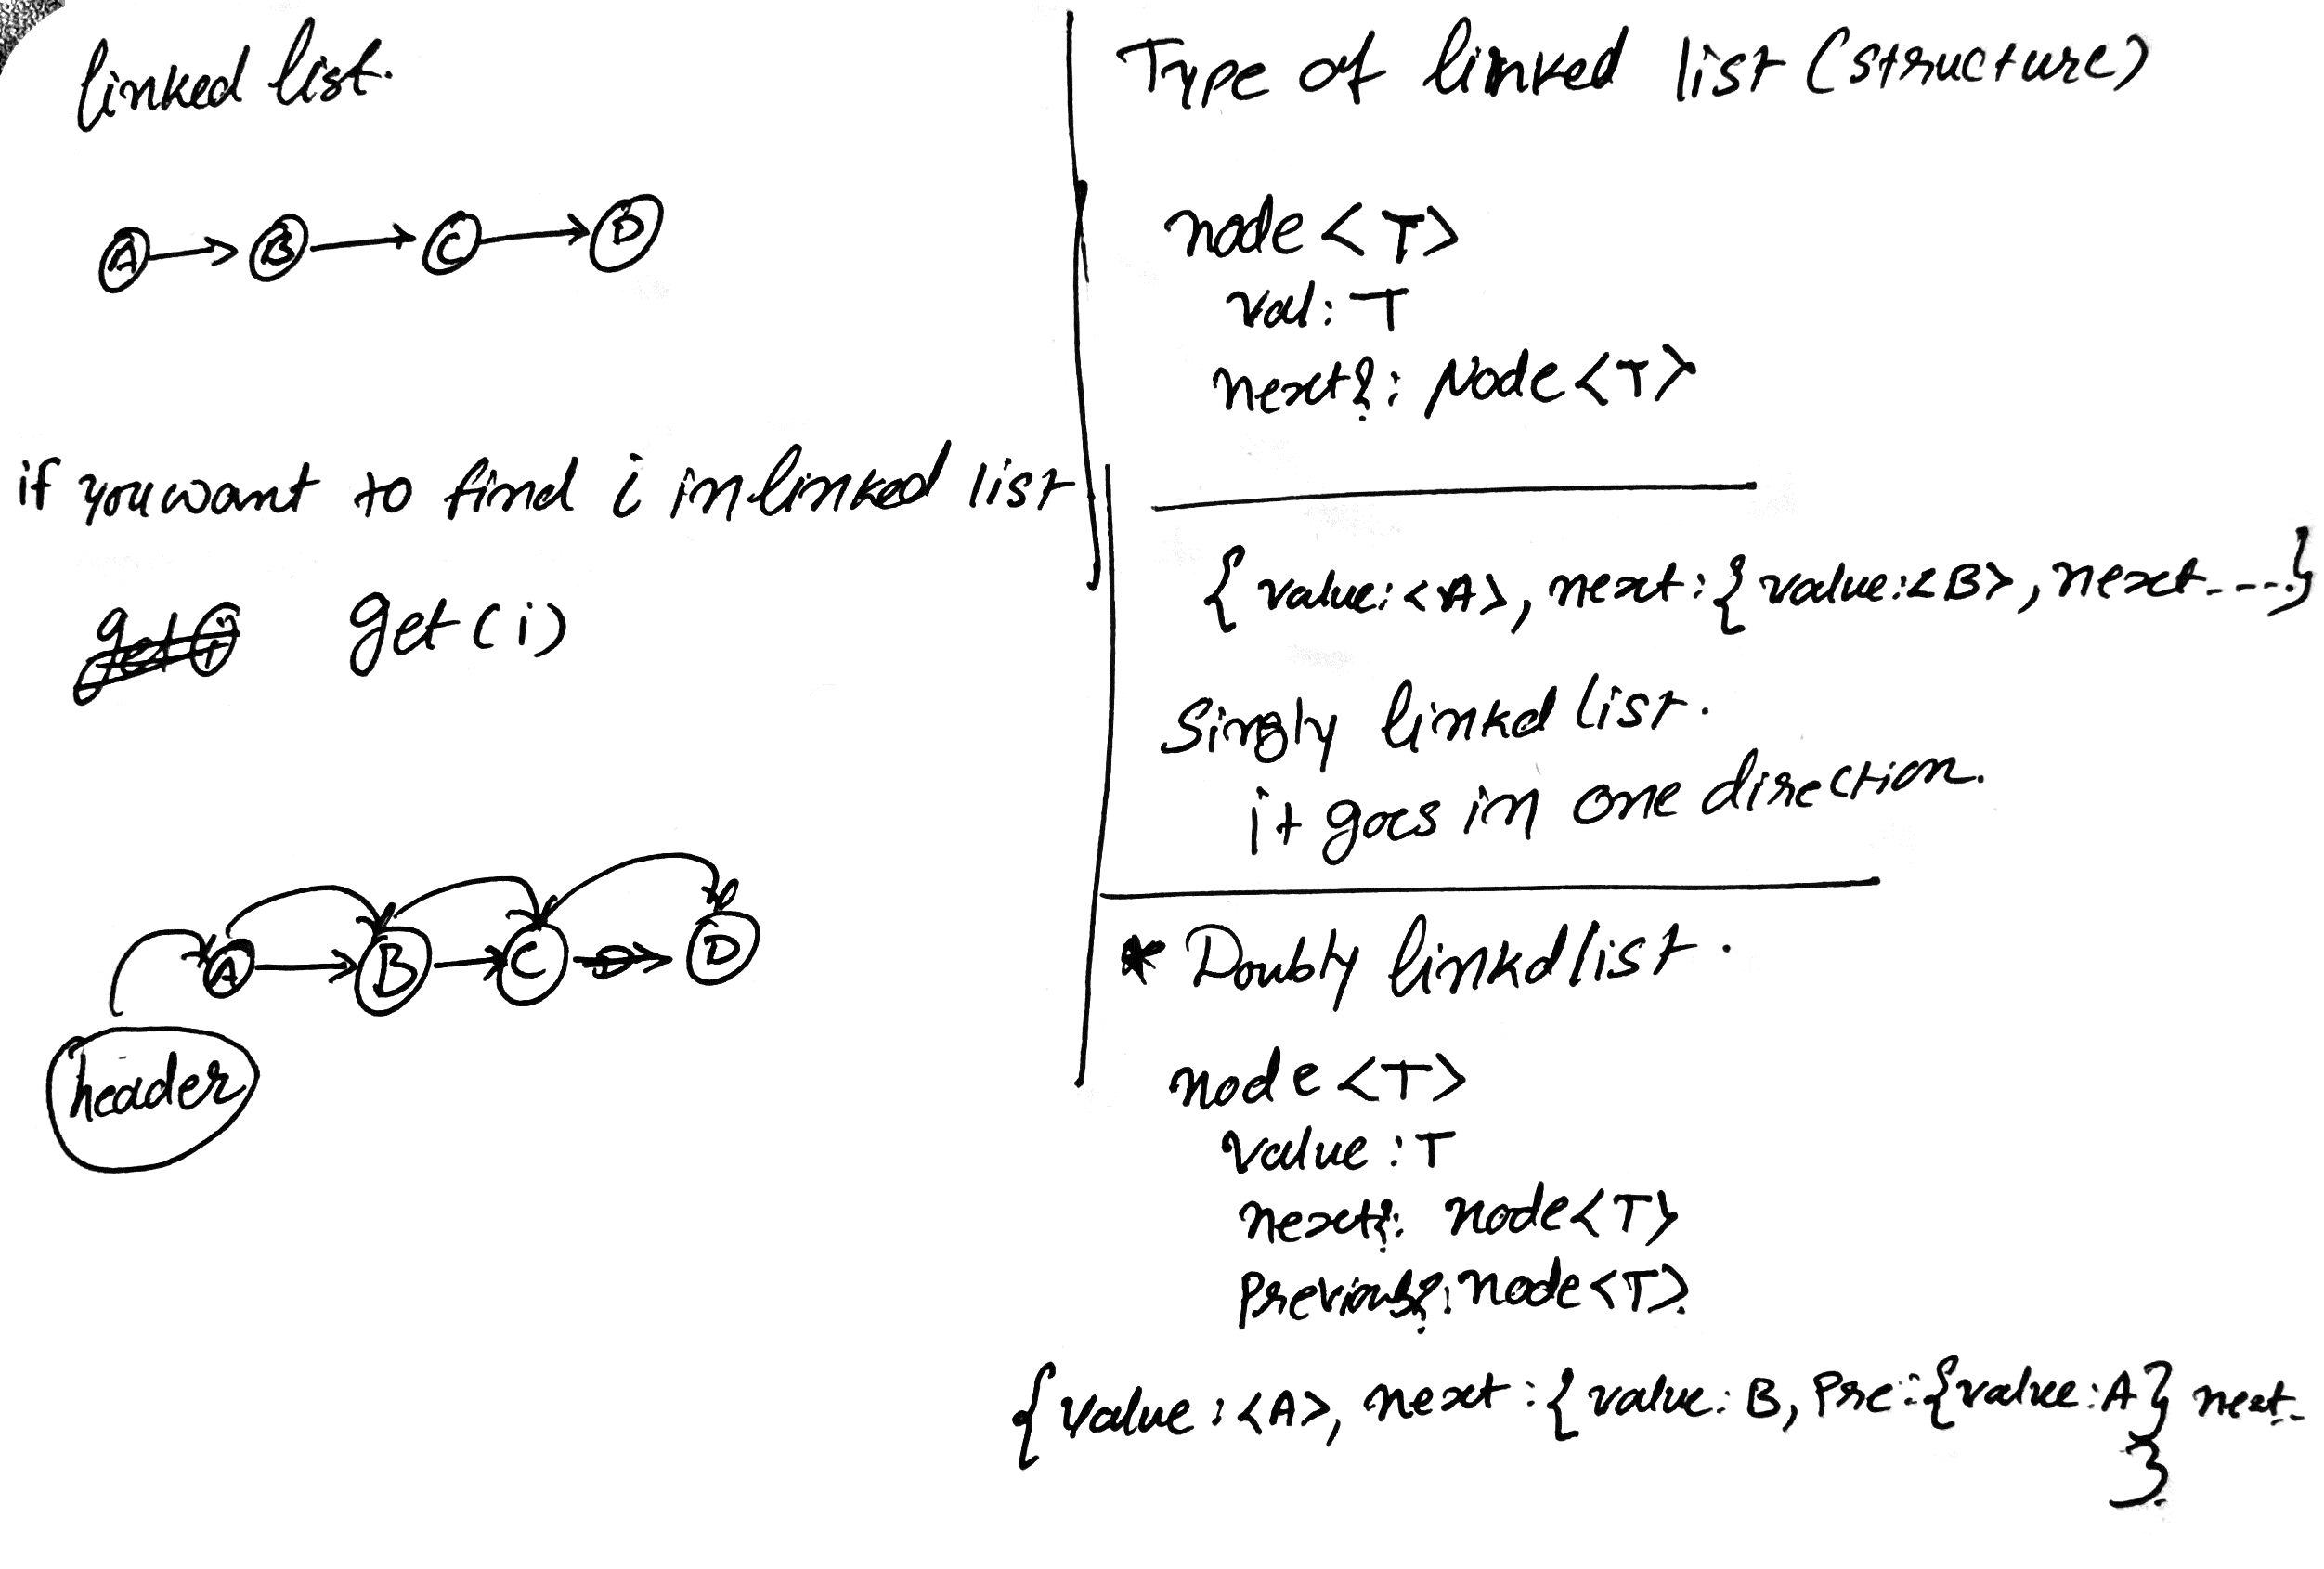 linked list.
A → B → C → D
if you want to find i in linked list
get(i)
A → B → C → D
header
Type of linked list (structure)
node <T>
val: T
next?: Node <T>
{ value: <A>, next: { value: <B>, next ---}
Singly linkd list.
it goes in one direction.
* Doubly linkd list.
node <T>
value : T
next?: node <T>
Previous?: node <T>
{ value : <A>, next : { value : B, Pre : {value : A} next--
}